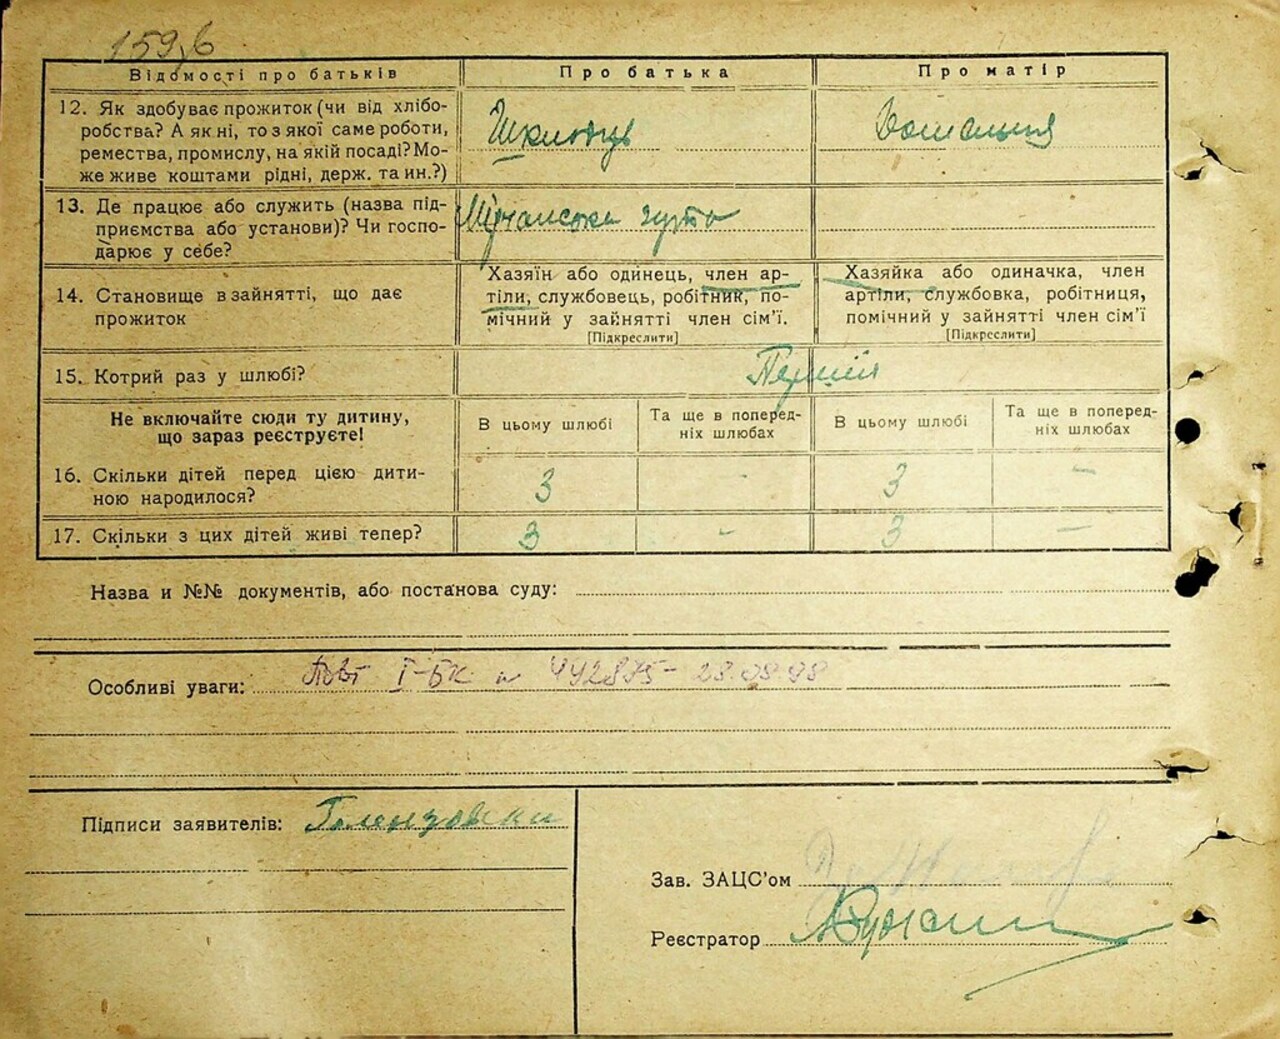 159,6
Відомості про батьків
Про батька
Про матір
12. Як здобуває прожиток (чи від хлібо-
робства? А як ні, то з якої саме роботи,
ремества, промислу, на якій посаді? Мо-
же живе коштами рідні, держ. та ин.?)
13. Де працює або служить (назва під-
приємства або установи)? Чи госпо-
дарює у себе?
гута
14. Становище в зайнятті, що дає
прожиток
Хазяїн або одинець, член ар-
тіли, службовець, робітник, по-
мічний у зайнятті член сім'ї.
[Підкреслити]
Хазяйка або одиначка, член
артіли, службовка, робітниця,
помічний у зайнятті член сім'ї
[Підкреслити]
15. Котрий раз у шлюбі?
Не включайте сюди ту дитину,
що зараз реєструєте!
В цьому шлюбі
Та ще в поперед-
ніх шлюбах
В цьому шлюбі
Та ще в поперед-
ніх шлюбах
16. Скільки дітей перед цією дити-
ною народилося?
3
-
3
-
17. Скільки з цих дітей живі тепер?
3
-
3
-
Назва и №№ документів, або постанова суду:
Особливі уваги:
Повт І-БК № 442875- 28.08.98
Підписи заявителів:
Зав. ЗАЦС'ом
Реєстратор